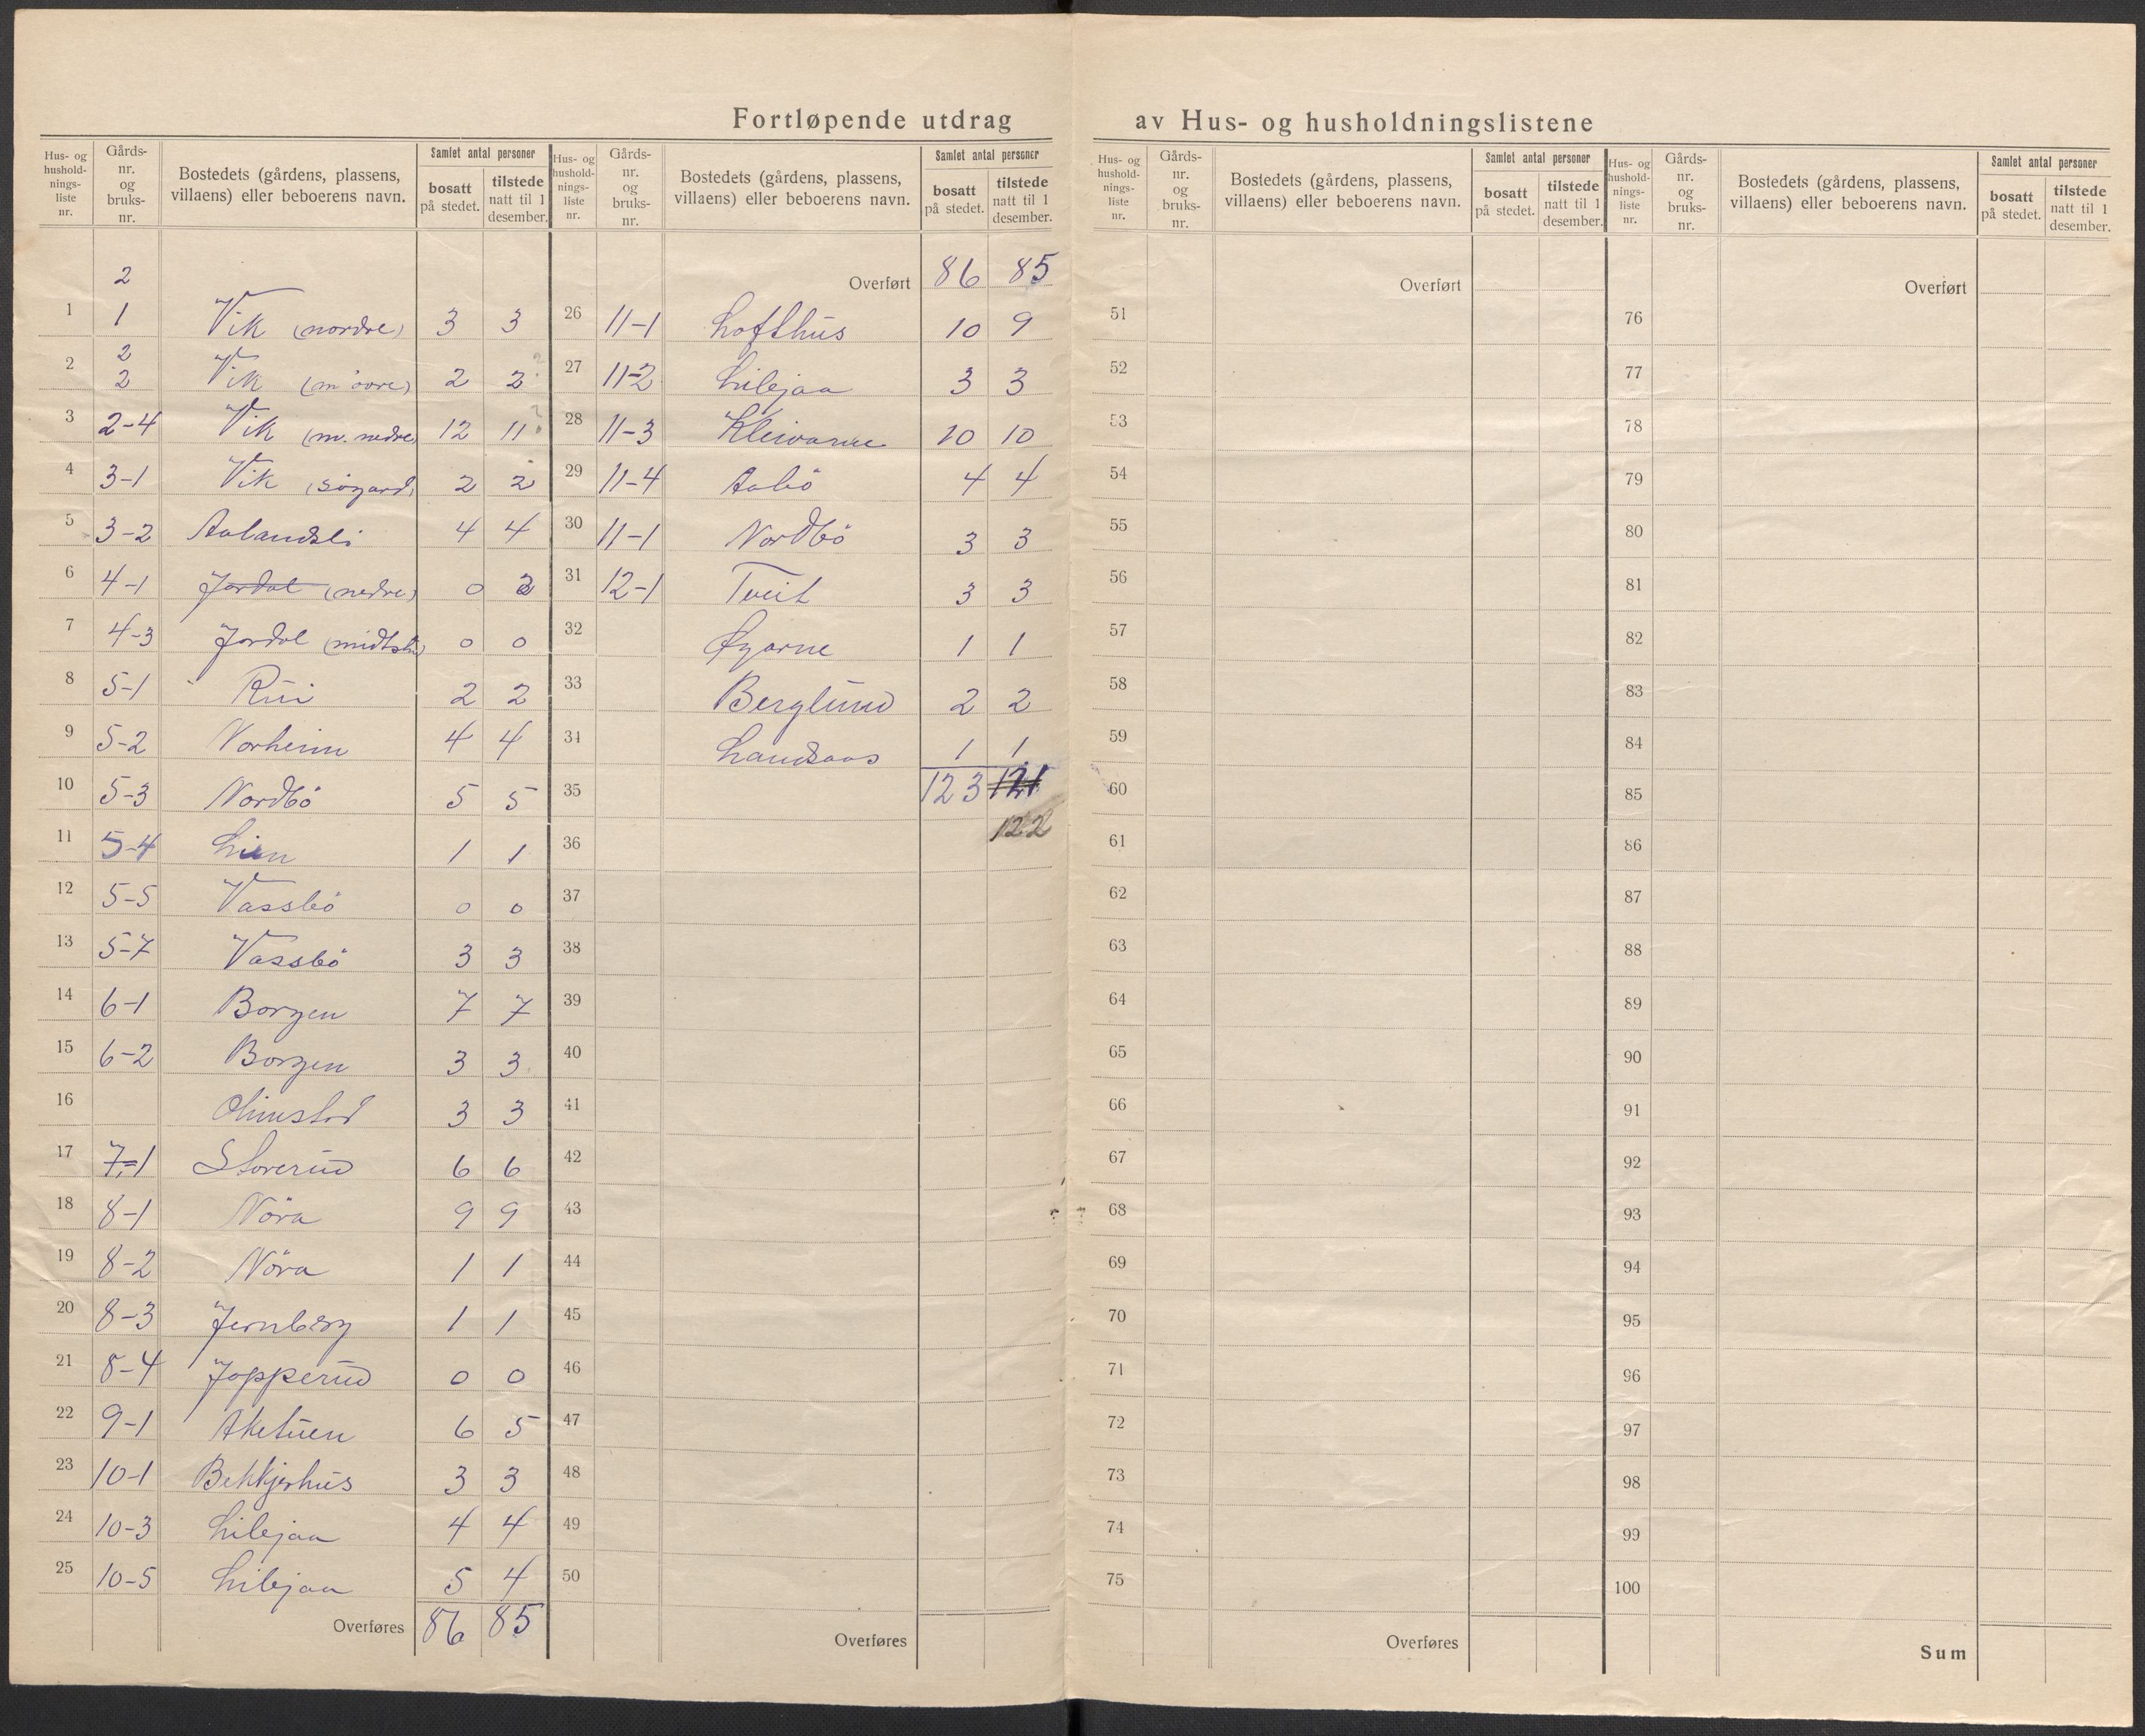 Fortløpende utdrag av Hus- og husholdningslistene
Hus- og hushold-nings-liste nr. Gårds-nr. og bruks-nr. Bostedets (gårdens, plassens, villaens) eller beboerens navn. Samlet antal personer bosatt på stedet. tilstede natt til 1 desember.
2
1 1 Vik (nordre) 3 3
2
2 2 Vik (m øvre) 2 2
3 2-4 Vik (m. nedre) 12 11
4 3-1 Vik (søgard) 2 2
5 3-2 Aalandsli 4 4
6 4-1 Jordal (nedre) 0 2
7 4-3 Jordal (midtstu) 0 0
8 5-1 Rui 2 2
9 5-2 Norheim 4 4
10 5-3 Nordbö 5 5
11 5-4 Lien 1 1
12 5-5 Vassbö 0 0
13 5-7 Vassbö 3 3
14 6-1 Borgen 7 7
15 6-2 Borgen 3 3
16 Olimstad 3 3
17 7-1 Storerud 6 6
18 8-1 Nöra 9 9
19 8-2 Nöra 1 1
20 8-3 Jernberg 1 1
21 8-4 Jopperud 0 0
22 9-1 Aketuen 6 5
23 10-1 Bekkjerhus 3 3
24 10-3 Libejaa 4 4
25 10-5 Libejaa 5 4
Overføres 86 85
Hus- og hushold-nings-liste nr. Gårds-nr. og bruks-nr. Bostedets (gårdens, plassens, villaens) eller beboerens navn. Samlet antal personer bosatt på stedet. tilstede natt til 1 desember.
Overført 86 85
26 11-1 Lofthus 10 9
27 11-2 Libejaa 3 3
28 11-3 Kleivarne 10 10
29 11-4 Aabö 4 4
30 11-1 Nordbö 3 3
31 12-1 Tveit 3 3
32 Øygarne 1 1
33 Berglund 2 2
34 Landsaas 1 1
35 123 121
36 122
37
38
39
40
41
42
43
44
45
46
47
48
49
50
Overføres
Hus- og hushold-nings-liste nr. Gårds-nr. og bruks-nr. Bostedets (gårdens, plassens, villaens) eller beboerens navn. Samlet antal personer bosatt på stedet. tilstede natt til 1 desember.
Overført
51
52
53
54
55
56
57
58
59
60
61
62
63
64
65
66
67
68
69
70
71
72
73
74
75
Overføres
Hus- og hushold-nings-liste nr. Gårds-nr. og bruks-nr. Bostedets (gårdens, plassens, villaens) eller beboerens navn. Samlet antal personer bosatt på stedet. tilstede natt til 1 desember.
Overført
76
77
78
79
80
81
82
83
84
85
86
87
88
89
90
91
92
93
94
95
96
97
98
99
100
Sum